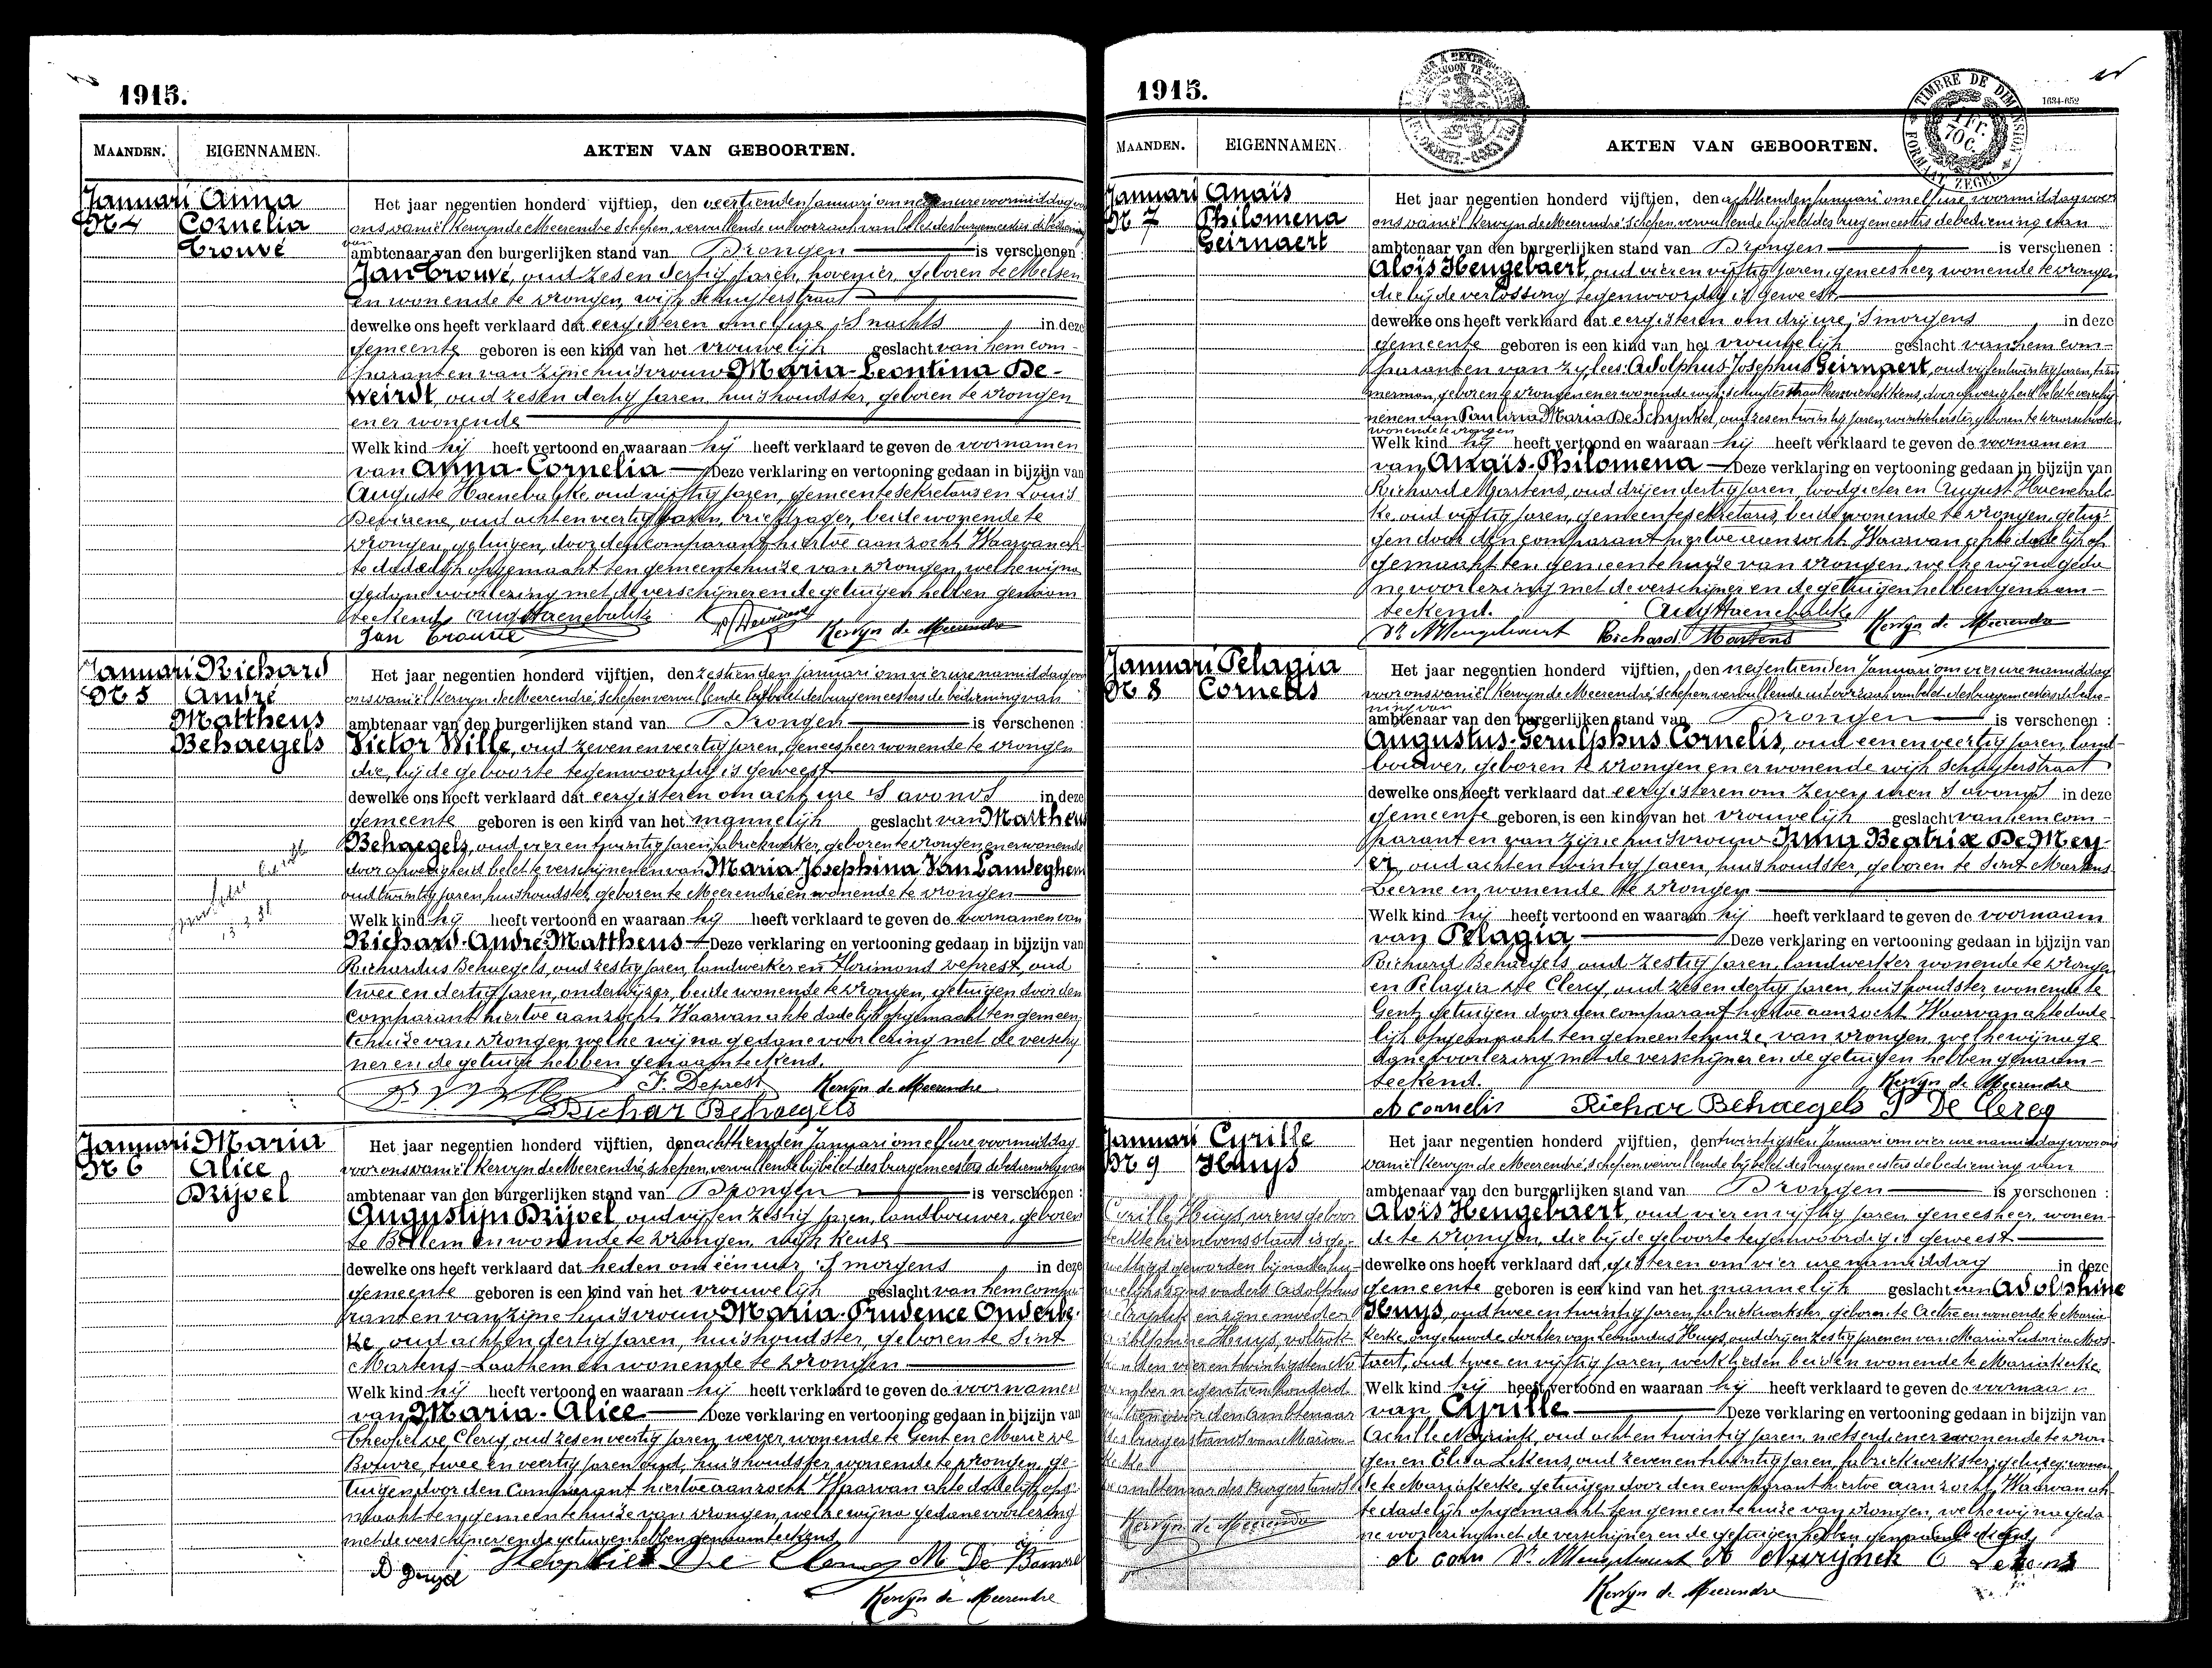 1915.
MAANDEN. EIGENNAMEN. AKTEN VAN GEBOORTEN.
Januari Anna
N 4 Cornelia
Trouvé
Het jaar negentien honderd vijftien, den veertienden Januari om negen ure voormiddag voor
ons Daniël Kervyn de Meerendré schepen, vervullende uit oorzaak van belet des burgemeesters de bediening
van
ambtenaar van den burgerlijken stand van Drongen is verschenen :
Jan Trouvé, oud zes en dertig jaren, hovenier, geboren te Melsen
en wonende te Drongen, wijk Schuyterstraat
dewelke ons heeft verklaard dat eergisteren om elf ure 'S nachts in deze
gemeente geboren is een kind van het vrouwelijk geslacht van hem com-
parant en van zijne huisvrouw Maria-Leontina De-
Weirdt, oud zes en dertig jaren, huishoudster, geboren te Drongen
en er wonende
Welk kind hij heeft vertoond en waaraan hij heeft verklaard te geven de voornamen
van Anna-Cornelia Deze verklaring en vertooning gedaan in bijzijn van
Auguste Haenebalke, oud vijftig jaren, gemeentesekretaris en Louis
Deviaene, oud acht en veertig jaren, briefdrager, beide wonende te
Drongen, getuigen, door den comparant hiertoe aanzocht. Waarvan ak-
te dadelijk opgemaakt ten gemeentehuize van Drongen, welke wij na
gedane voorlezing met de verschijner en de getuigen hebben genaam
teekend. Aug Haenebalke Kervyn de Meerendre
Jan Trouvé
Januari Richard
N 5 André
Mattheus
Behaegels
Het jaar negentien honderd vijftien, den zestienden Januari om vier ure namiddag voor
ons Daniël Kervyn de Meerendré, schepen vervullende bij belet des burgemeesters de bediening van
ambtenaar van den burgerlijken stand van Drongen is verschenen :
Victor Wille, oud zeven en veertig jaren, geneesheer wonende te Drongen
die bij de geboorte tegenwoordig is geweest
dewelke ons heeft verklaard dat eergisteren om acht ure 'S avonds in deze
gemeente geboren is een kind van het mannelijk geslacht van Mattheus
Behaegels, oud vier en twintig jaren, fabriekwerker, geboren te Drongen en er wonende
door afwezigheid belet te verschijnen en van Maria Josephina Van Landeghem
oud twintig jaren, huishoudster, geboren te Meerendré en wonende te Drongen
Welk kind hij heeft vertoond en waaraan hij heeft verklaard te geven de voornamen van
Richard-André-Mattheus Deze verklaring en vertooning gedaan in bijzijn van
Richardus Behaegels, oud zestig jaren, landwerker en Florimond Deprest, oud
twee en dertig jaren, onderwijzer, beide wonende te Drongen, getuigen door den
comparant hiertoe aanzocht. Waarvan akte dadelijk opgemaakt ten gemeen-
tehuize van Drongen, welke wij na gedane voorlezing met de verschij-
ner en de getuige hebben genaamteekend.
F. Deprest Kervyn de Meerendre
Richar Behaegels
Januari Maria
N 6 Alice
Drijvel
Het jaar negentien honderd vijftien, den achttienden Januari om elf ure voormiddag
voor ons Daniël Kervyn de Meerendré, schepen, vervullende bij belet des burgemeesters de bediening van
ambtenaar van den burgerlijken stand van Drongen is verschenen :
Augustijn Drijvel, oud vijf en zestig jaren, landbouwer, geboren
te Bellem en wonende te Drongen, wijk Keuse
dewelke ons heeft verklaard dat heden om één uur 'S morgens in deze
gemeente geboren is een kind van het vrouwelijk geslacht van hem compa-
rant en van zijne huisvrouw Maria-Prudence Onderbe-
ke, oud acht en dertig jaren, huishoudster, geboren te Sint
Martens-Laathem en wonende te Drongen
Welk kind hij heeft vertoond en waaraan hij heeft verklaard te geven de voornamen
van Maria-Alice Deze verklaring en vertooning gedaan in bijzijn van
Theofiel De Clercq, oud zes en veertig jaren, wever, wonende te Gent en Marie De
twee en veertig jaren oud, huishoudster wonende te Drongen, ge-
tuigen door den Comparant hiertoe aanzocht. Waarvan akte dadelijk opge-
maakt ten gemeentehuize van Drongen, welke wij na gedane voorlezing
met de verschijner en de getuigen hebben genaamteekend
Kervyn de Meerendre
1915.
TIMBRE DE DIMENSION
1 Fr. 70 C.
FORMAAT ZEGEL
MAANDEN. EIGENNAMEN. AKTEN VAN GEBOORTEN.
Januari Anaïs
N 7 Philomena
Geirnaert
Het jaar negentien honderd vijftien, den achttienden Januari om elf ure voormiddag voor
ons Daniël Kervyn de Meerendré schepen, vervullende bij belet des burgemeesters de bediening van
ambtenaar van den burgerlijken stand van Drongen is verschenen :
Aloïs Hengebaert, oud vier en vijftig jaren, geneesheer, wonende te Drongen
die bij de verlossing tegenwoordig is geweest
dewelke ons heeft verklaard dat eergisteren om drij ure 'S morgens in deze
gemeente geboren is een kind van het vrouwelijk geslacht van hem com-
Adolphus-Josephus Geirnaert, oud vijf en twintig jaren, tim-
merman, geboren te Drongen en er wonende wijk Schuyterstraat door afwezigheid belet te verschij-
nen en van Paulina Maria De Schynkel, oud zes en twintig jaren,
wonende te Drongen
Welk kind hij heeft vertoond en waaraan hij heeft verklaard te geven de voornamen
van Anaïs-Philomena Deze verklaring en vertooning gedaan in bijzijn van
Richard Martens, oud drij en dertig jaren, loodgieter en August Haenebal-
ke, oud vijftig jaren, gemeentesekretaris, beide wonende te Drongen, getui-
gen door den comparant hiertoe aanzocht. Waarvan akte dadelijk op
gemaakt ten gemeentehuize van Drongen, welke wij na geda
ne voorlezing met de verschijner en de getuigen hebben genaam-
teekend. Aug Haenebalke
Dr A Hengebaert Richard Martens Kervyn de Meerendre
Januari Pelagia
N 8 Cornelis
Het jaar negentien honderd vijftien, den negentienden Januari om vier ure namiddag
voor ons Daniël Kervyn de Meerendré, schepen vervullende uit oorzaak van belet des burgemeesters de bedie-
ning van
ambtenaar van den burgerlijken stand van Drongen is verschenen :
Augustus-Gerulphus Cornelis, oud een en veertig jaren, land-
bouwer, geboren te Drongen en er wonende wijk Schuyterstraat
dewelke ons heeft verklaard dat eergisteren om zeven uren 'S avonds in deze
gemeente geboren is een kind van het vrouwelijk geslacht van hem com-
parant en van zijne huisvrouw Irma Beatrix De Mey-
er, oud acht en twintig jaren, huishoudster, geboren te Sint Martens
Leerne en wonende te Drongen
Welk kind hij heeft vertoond en waaraan hij heeft verklaard te geven de voornaam
van Pelagia Deze verklaring en vertooning gedaan in bijzijn van
Richard Behaegels, oud zestig jaren, landwerker wonende te Drongen
en Pelagia De Clercq, oud zes en dertig jaren, huishoudster, wonende te
Gent, getuigen door den comparant hiertoe aanzocht. Waarvan akte dade-
lijk opgemaakt ten gemeentehuize van Drongen, welke wij na ge
dane voorlezing met de verschijner en de getuigen hebben genaam-
teekend. Kervyn de Meerendre
A Cornelis Richar Behaegels P De Clercq
Januari Cyrille
N 9 Huys
Het jaar negentien honderd vijftien, den twintigsten Januari om vier ure namiddag voor ons
Daniël Kervyn de Meerendré schepen, vervullende bij belet des burgemeesters de bediening van
ambtenaar van den burgerlijken stand van Drongen is verschenen :
Aloïs Hengebaert, oud vier en vijftig jaren, geneesheer, wonen-
de te Drongen, die bij de geboorte tegenwoordig is geweest
dewelke ons heeft verklaard dat gisteren om vier ure namiddag in deze
gemeente geboren is een kind van het mannelijk geslacht van Adolphine
Huys, oud twee en twintig jaren, fabriekwerkster, geboren te Aeltre en wonende te Maria-
kerke, ongehuwde dochter van Huys, oud drij en zestig jaren en van Maria Ludovica Mos-
taert, oud twee en vijftig jaren, werklieden beiden wonende te Mariakerke
Welk kind hij heeft vertoond en waaraan hij heeft verklaard te geven de voornaam
van Cyrille Deze verklaring en vertooning gedaan in bijzijn van
Achille oud acht en twintig jaren, wonende te Dron-
gen en Elisa Lekens, oud zeven en twintig jaren, fabriekwerkster,
de te Mariakerke, getuigen door den comparant hiertoe aanzocht. Waarvan ak-
te dadelijk opgemaakt ten gemeentehuize van Drongen, welke wij na geda
ne voorlezing met de verschijner en de getuigen hebben
Kervyn de Meerendre
Cyrille Huys, wiens geboor
vaders Adolphus
Adolphine Huys, voltrok-
den vier en twintigsten No
vember negentien honderd
voor den ambtenaar
des burgerstands van Maria-
kerke
ambtenaar des Burgerstands
Kervyn de Meerendre